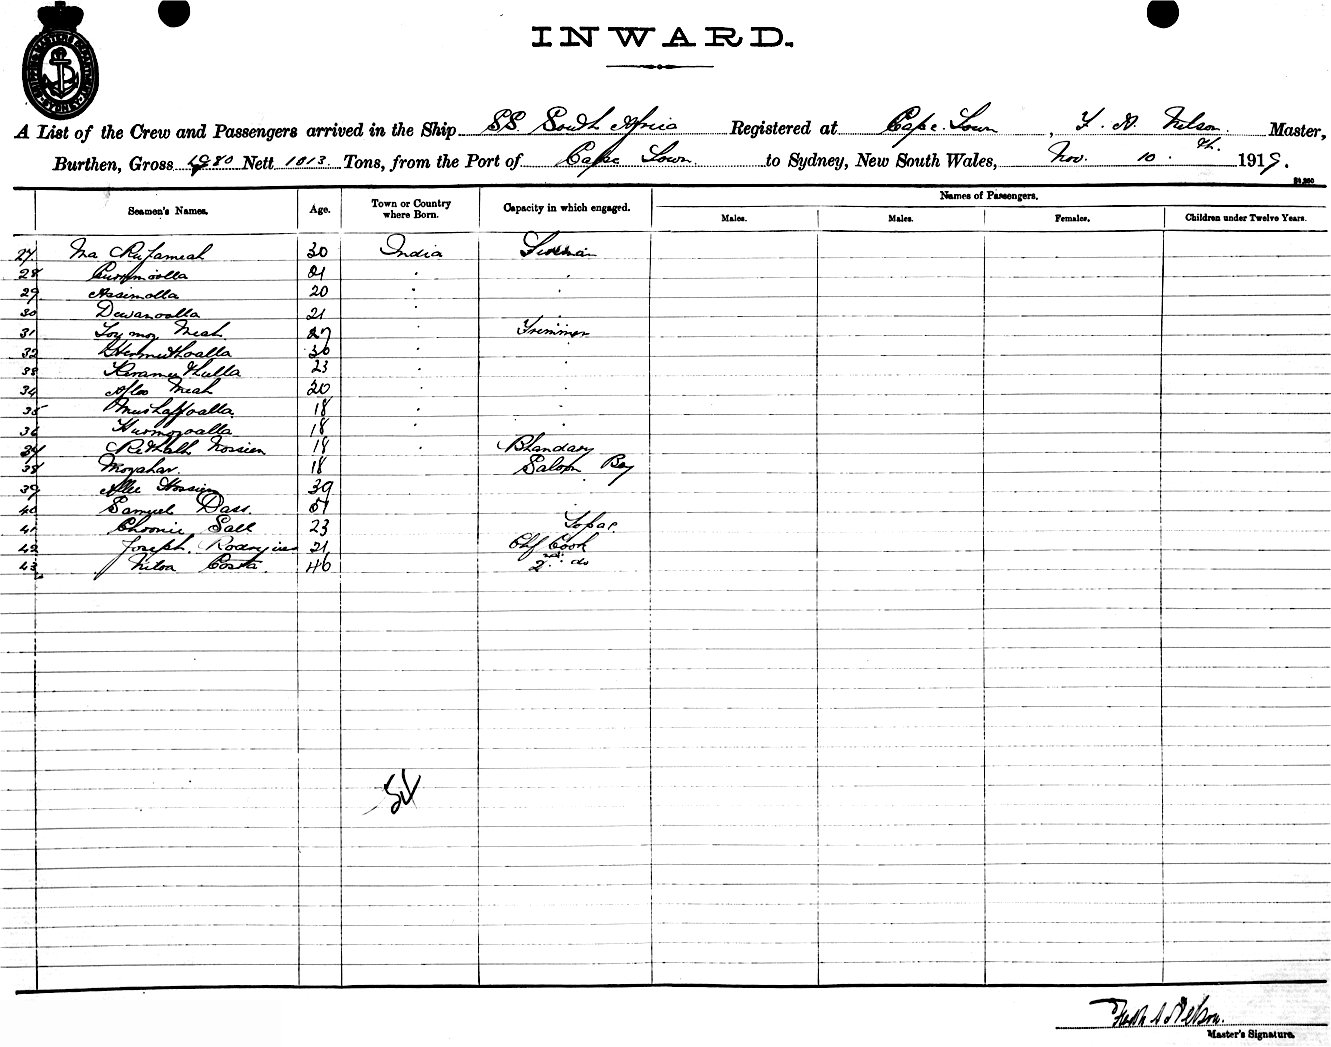 INWARD.
SHIPPING MASTERS DEPARTMENT SYDNEY
A List of the Crew and Passengers arrived in the Ship SS. South Africa Registered at Cape Town, F. A. Nelson Master,
Burthen, Gross 1980 Nett 1013 Tons, from the Port of Cape Town to Sydney, New South Wales, Nov. 10th. 1919.
Seamen's Names. Age. Town or Country where Born. Capacity in which engaged. Names of Passengers.
Males. Males. Females. Children under Twelve Years.
27 30 India Fireman
28 21 " "
29 Assimolla 20 " "
30 Dewanoolla 21 " "
31 Meah 27 " Trimmer
32 30 " "
33 23 " "
34 Meah 20 " "
35 Mushaffoalla 18 " "
36 18 " "
37 Hossien 18 " Bhandary
38 Moyahar. 18 Saloon Boy
39 Allee Hossien 39
40 Samuel Dass. 51
41 Choonie Lall 23 Topas
42 Joseph Rodrigues 21 Chf Cook
43 Costa. 46 2nd do
Master's Signature.